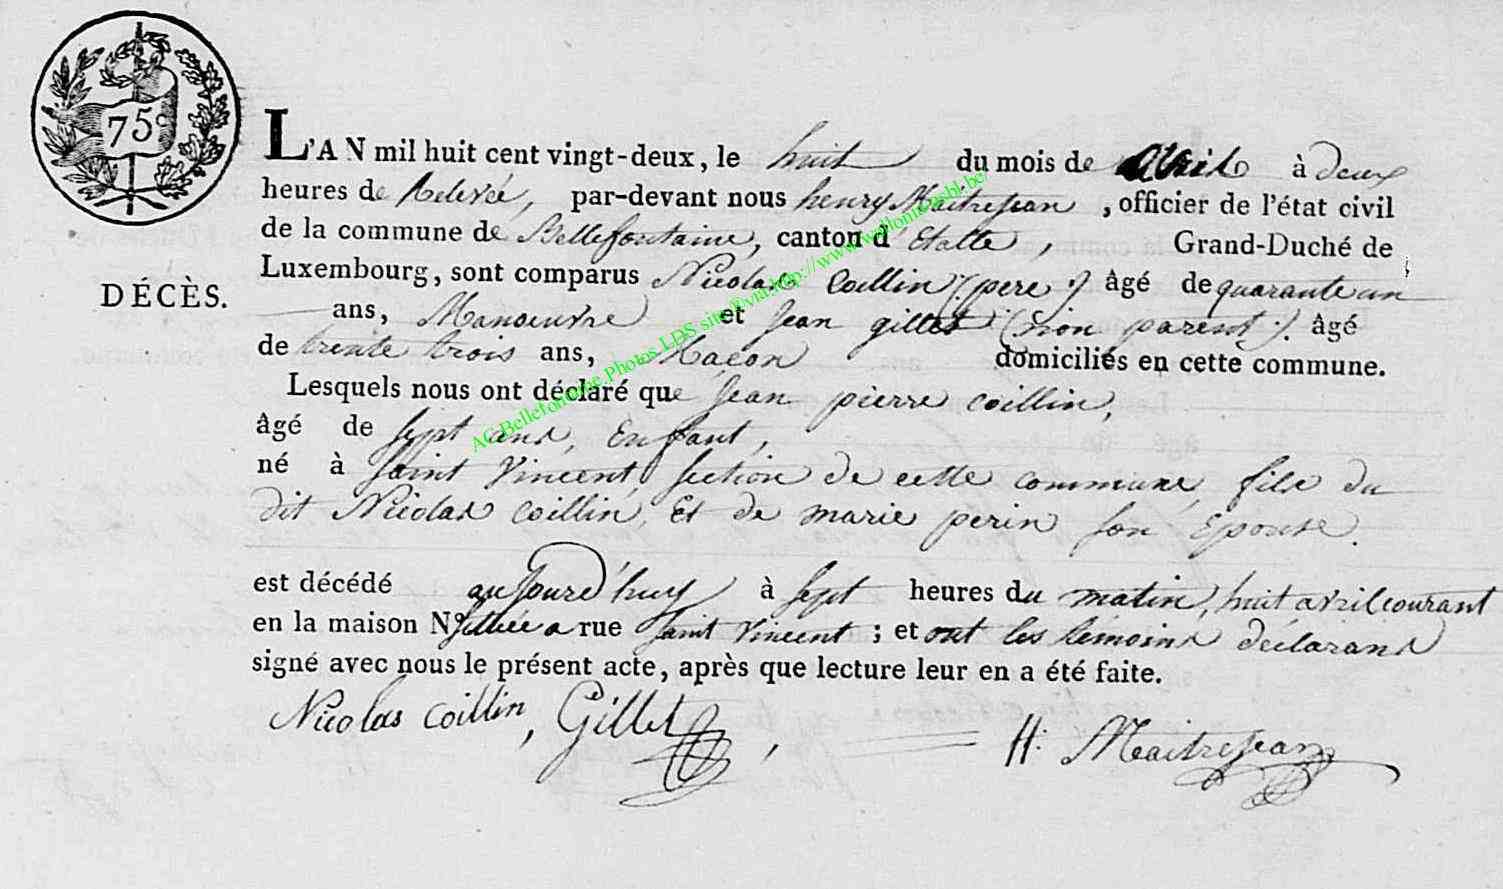 75c
L'AN mil huit cent vingt-deux, le huit du mois de avril à deux
heures de relevée, par-devant nous henry Maitrejean, officier de l'état civil
de la commune de Bellefontaine, canton d'Etalle, Grand-Duché de
Luxembourg, sont comparus Nicolas Coillin (: pere :) âgé de quarante un
DÉCÈS.
ans, Manoeuvre et jean gillet (: non parent :) âgé
de trente trois ans, Maçon domiciliés en cette commune.
Lesquels nous ont déclaré que jean pierre coillin,
âgé de sept ans, Enfant,
né à Saint Vincent, section de cette commune, fils du
dit Nicolas coillin, Et de marie perin son Epouse.
est décédé aujourd'huy à sept heures du matin, huit avril courant
en la maison No. sittuée a rue Saint Vincent ; et ont les témoins déclarans
signé avec nous le présent acte, après que lecture leur en a été faite.
Nicolas Coillin, Gillet, H: Maitrejean
AC Bellefontaine Photos LDS site via http://www.wallonica